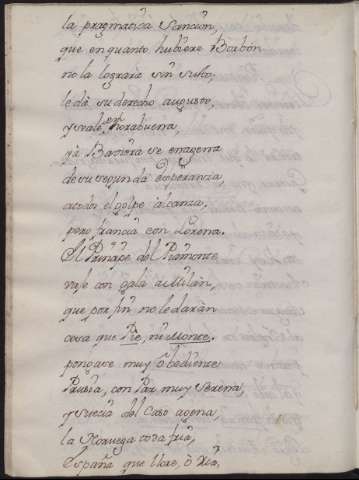 la pragmatica Sancion,
que en quanto hubiere Borbón
no la lograrà sin susto,
le dà su derecho augusto,
y vale enorabuena,
yà Baviera se enagena
de su segunda esperanza,
a todos el golpe alcanza,
pero francia con Lorena.
Al Principe del Piamonte
vajò con gala à Milàn,
que por fin no le daràn
cosa que Pie, ni Monte.
pongase muy obediente
Prusia, con Paz muy serena,
y suecia del Caso agena,
la Noruega cosa fria,
España que llore, ò ria,